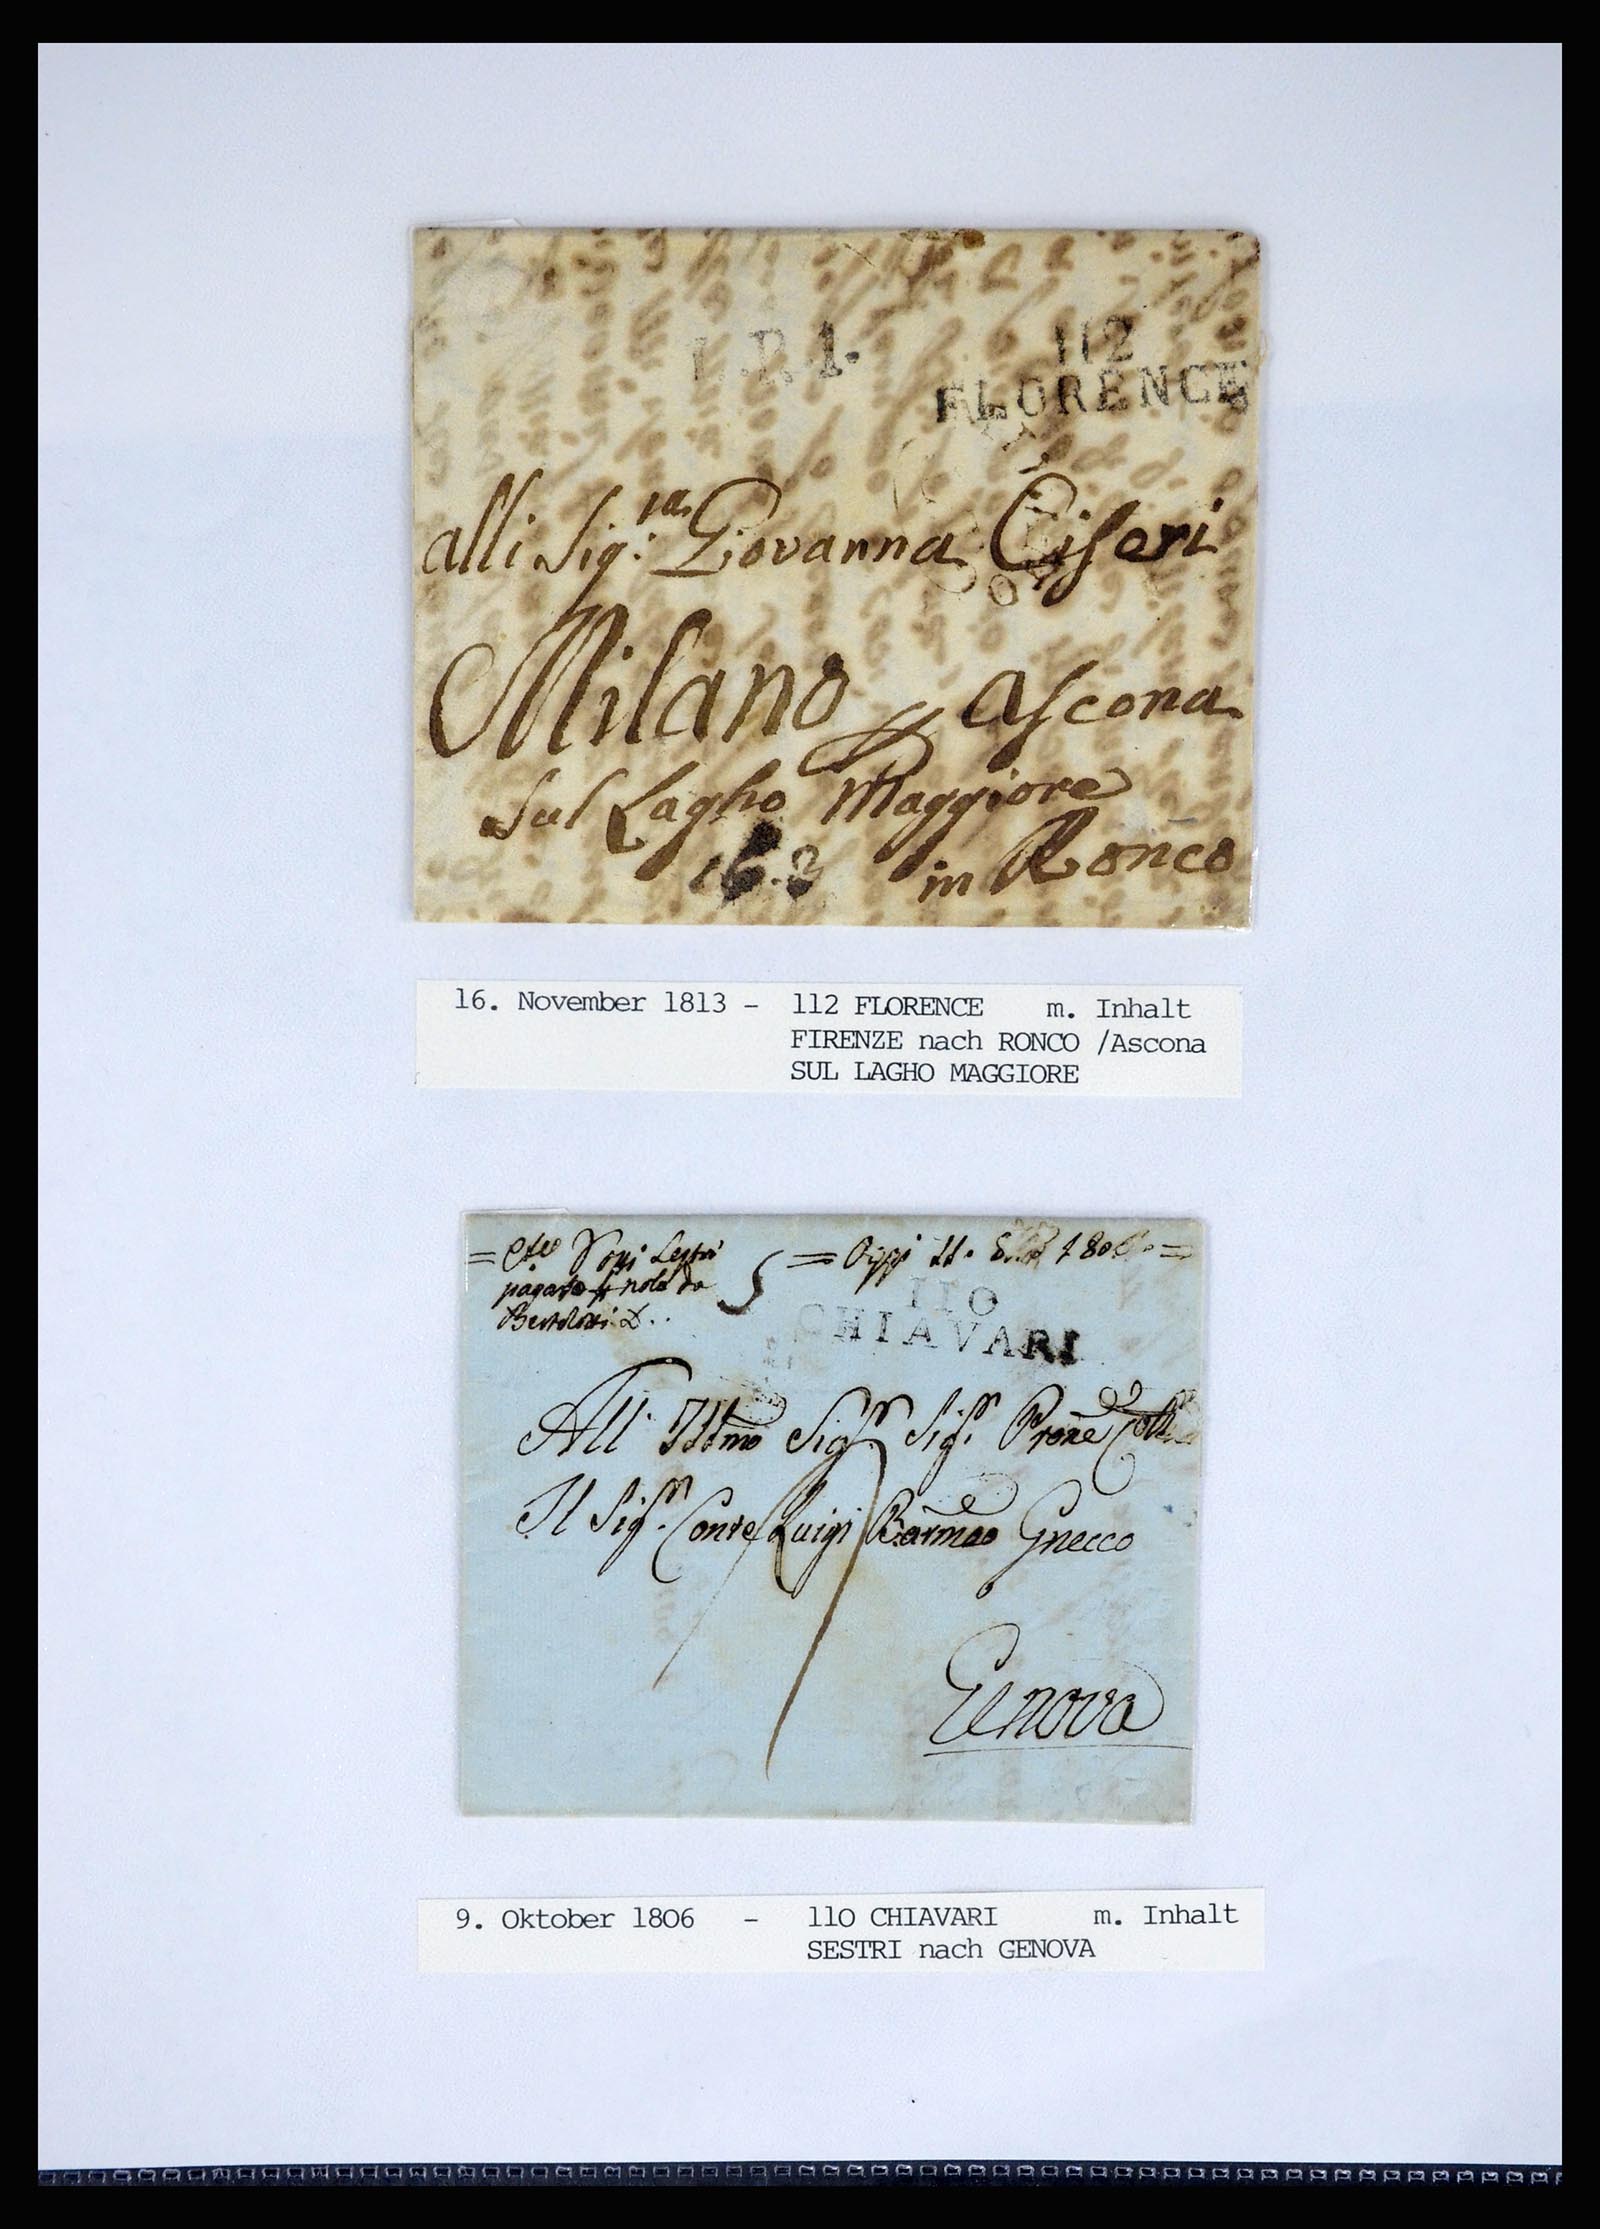 L.P.1.
112
FLORENCE
alli Sig:ra Giovanna Ciseri
Milano Ascona
Sul Lagho Maggiore
16.3 in Ronco
16. November 1813 - 112 FLORENCE m. Inhalt
FIRENZE nach RONCO /Ascona
SUL LAGHO MAGGIORE
= =
Oggi 11. 1806. =
110
CHIAVARI
All' Illmo Sigr. Sigr. Prone
Il Sigr. Conte Luigi Barmeo Gnecco
Genova
9. Oktober 1806 - 110 CHIAVARI m. Inhalt
SESTRI nach GENOVA